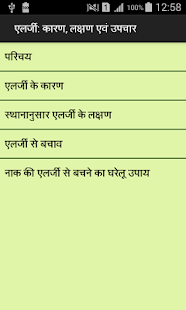 12:58
एलर्जी: कारण, लक्षण एवं उपचार
परिचय
एलर्जी के कारण
स्थानानुसार एलर्जी के लक्षण
एलर्जी से बचाव
नाक की एलर्जी से बचने का घरेलू उपाय